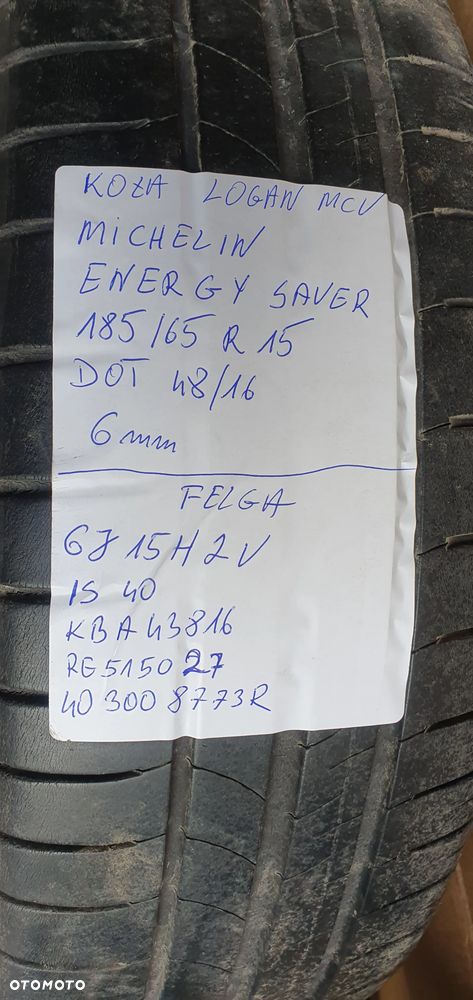 KOŁA LOGAN MCV
MICHELIN
ENERGY SAVER
185/65 R 15
DOT 48/16
6 mm
FELGA
6J 15H2V
IS 40
KBA 43816
RE515027
40 300 8773R
OTOMOTO